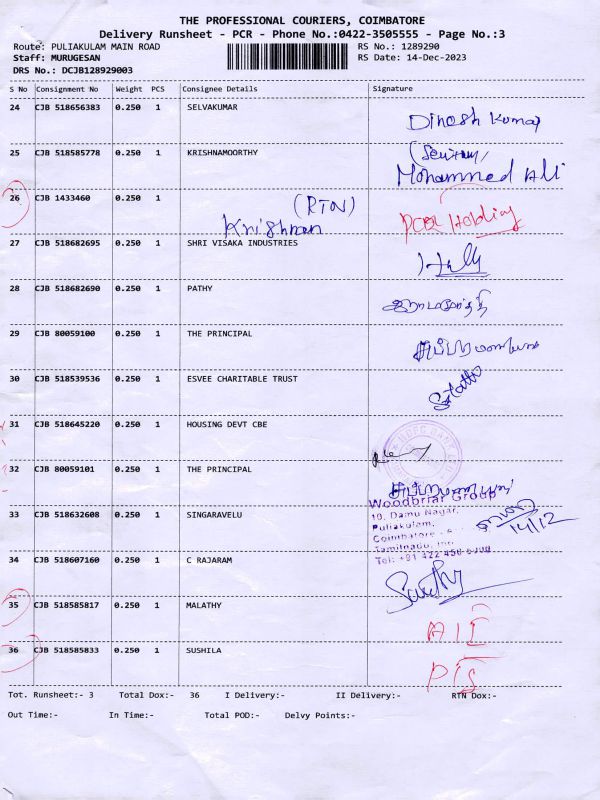 THE PROFESSIONAL COURIERS, COIMBATORE
Delivery Runsheet - PCR - Phone No.:0422-3505555 - Page No.:3
Route: PULIAKULAM MAIN ROAD RS No.: 1289290
Staff: MURUGESAN RS Date: 14-Dec-2023
DRS No.: DCJB128929003
S No Consignment No Weight PCS Consignee Details Signature
24 CJB 518656383 0.250 1 SELVAKUMAR Dinesh Kumar
25 CJB 518585778 0.250 1 KRISHNAMOORTHY
Mohammed Ali
26 CJB 1433460 0.250 1 (RTN) Holding
Krishnan
27 CJB 518682695 0.250 1 SHRI VISAKA INDUSTRIES
28 CJB 518682690 0.250 1 PATHY
29 CJB 80059100 0.250 1 THE PRINCIPAL
30 CJB 518539536 0.250 1 ESVEE CHARITABLE TRUST
31 CJB 518645220 0.250 1 HOUSING DEVT CBE
32 CJB 80059101 0.250 1 THE PRINCIPAL
Woodbriar Group
33 CJB 518632608 0.250 1 SINGARAVELU 19, Damu Nagar,
Puliakulam, 14/12
Coimbatore
Tamilnadu,
34 CJB 518607160 0.250 1 C RAJARAM Tel: +91 422
35 CJB 518585817 0.250 1 MALATHY
36 CJB 518585833 0.250 1 SUSHILA
Tot. Runsheet:- 3 Total Dox:- 36 I Delivery:- II Delivery:- RTN Dox:-
Out Time:- In Time:- Total POD:- Delvy Points:-